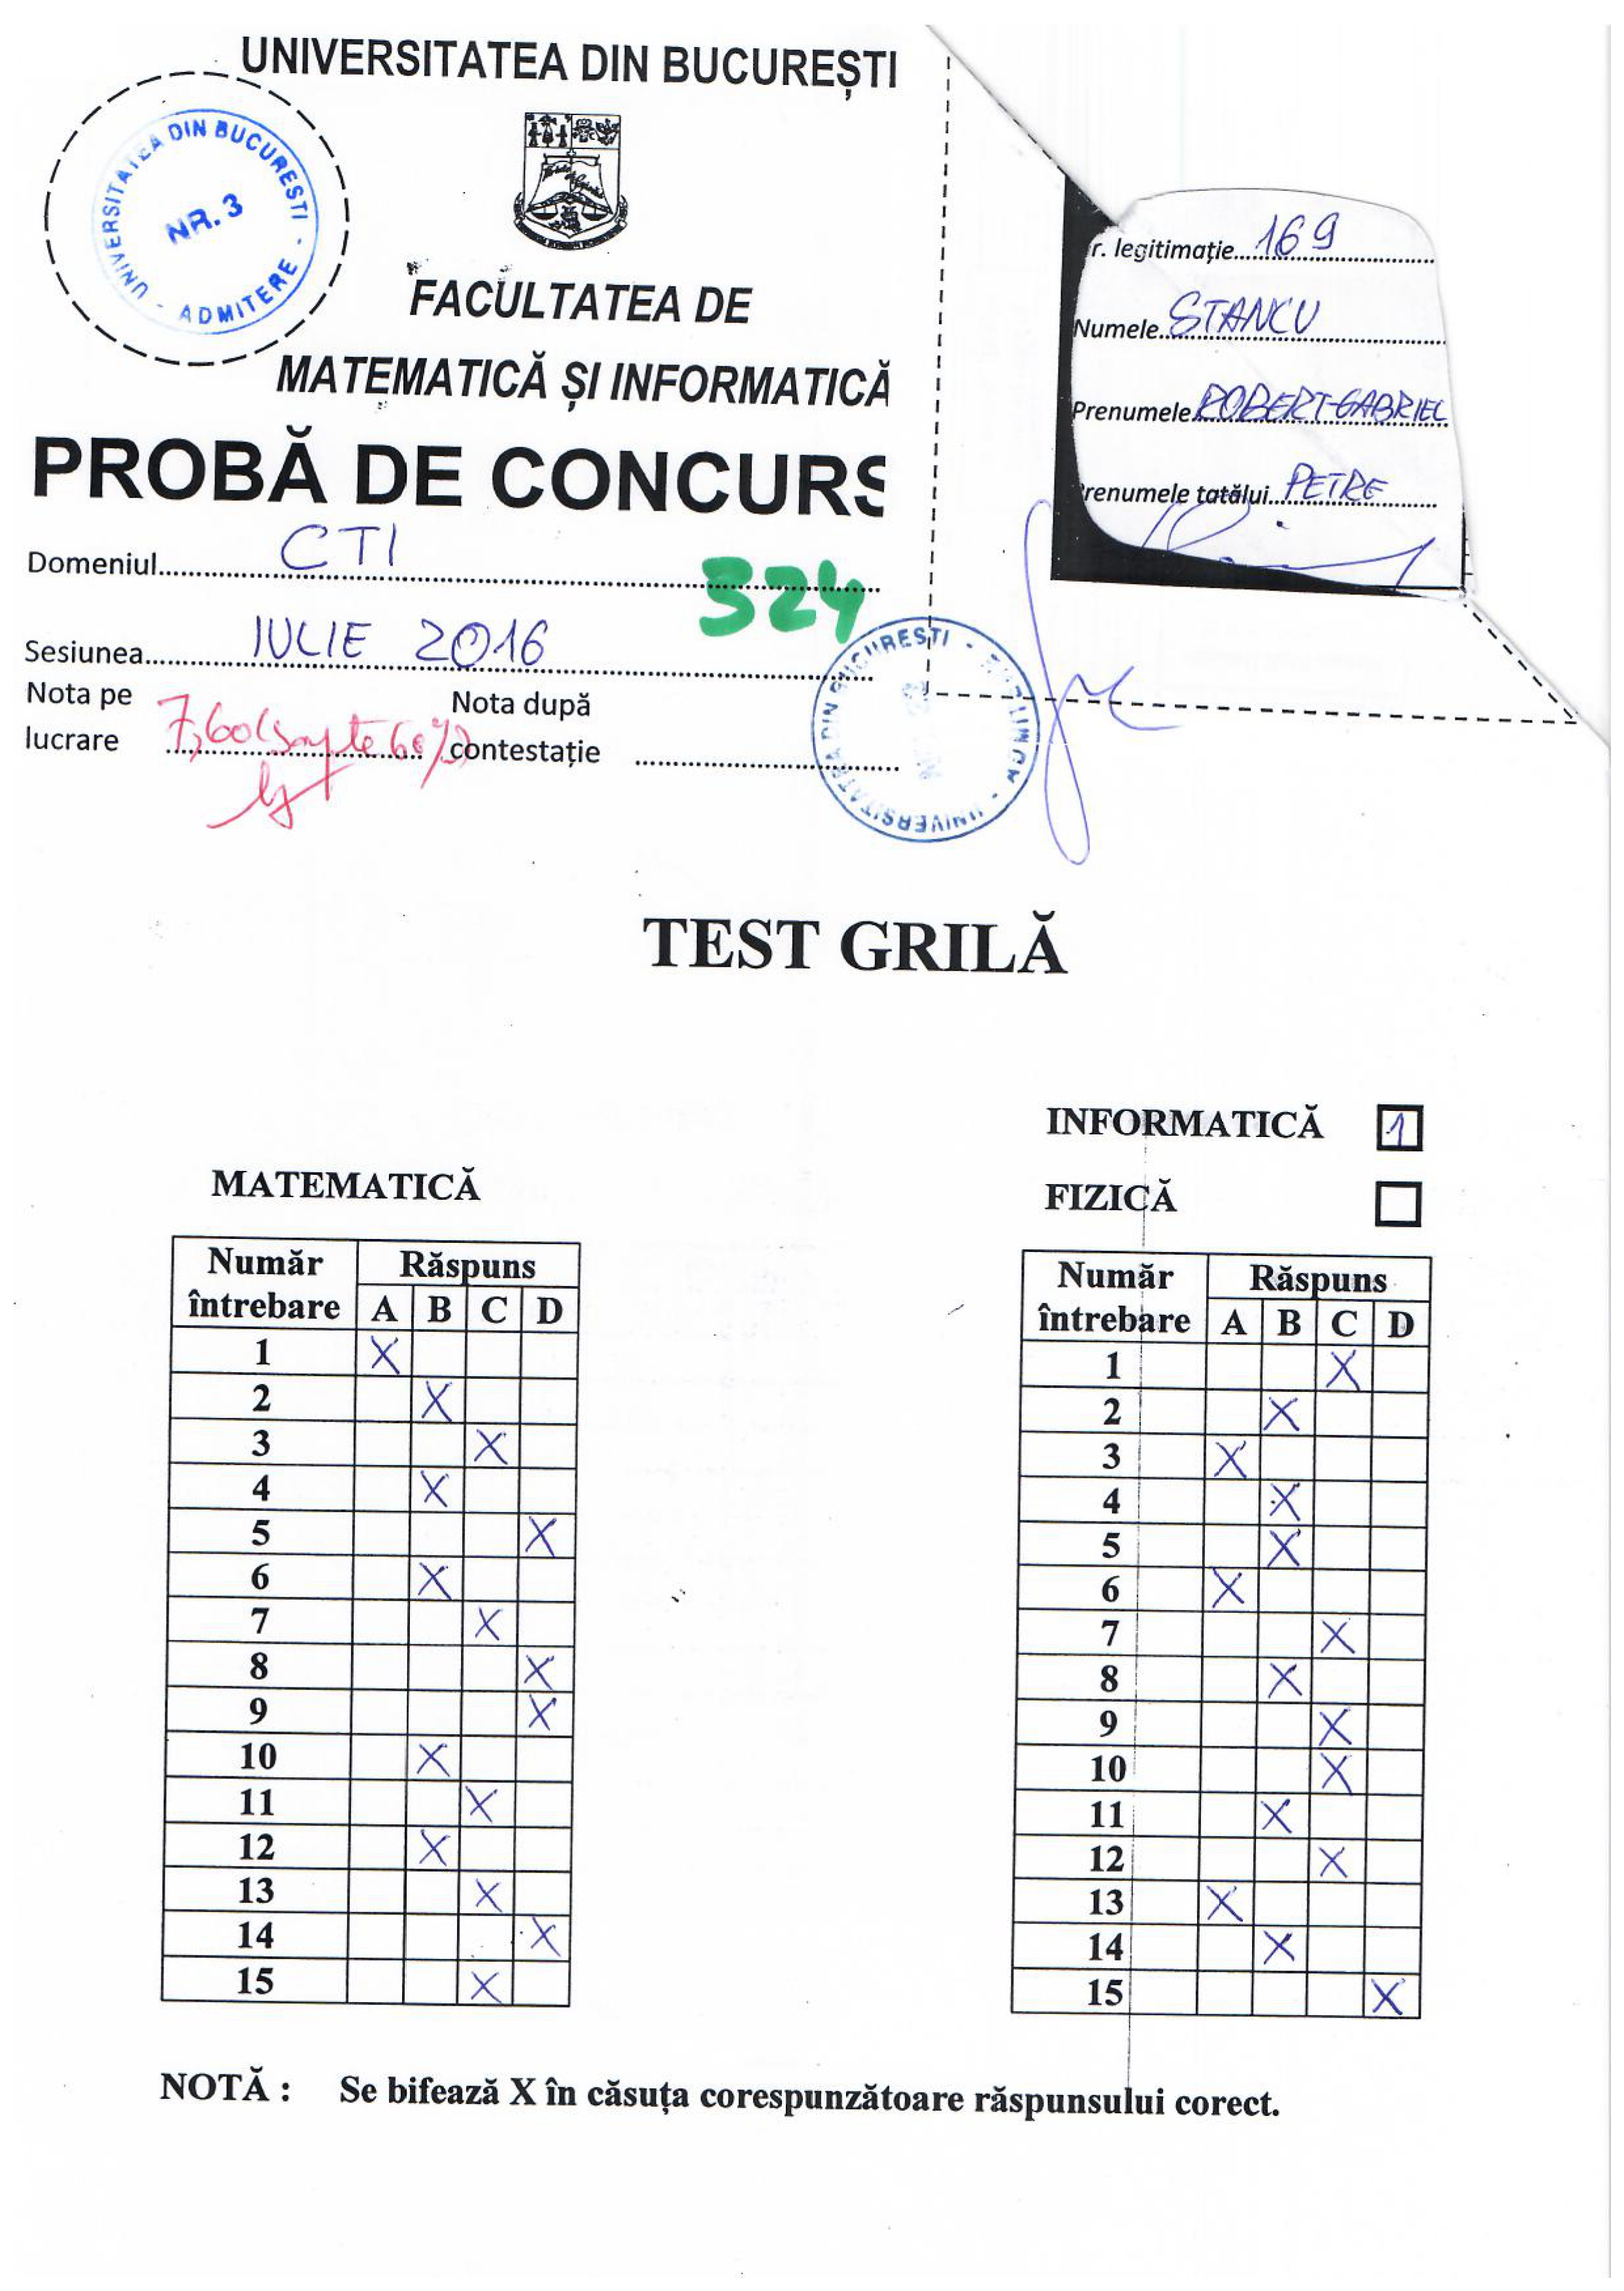 UNIVERSITATEA DIN BUCUREȘTI
UNIVERSITATEA DIN BUCURESTI - ADMITERE -
NR. 3
FACULTATEA DE
MATEMATICĂ ȘI INFORMATICĂ
PROBĂ DE CONCURS
Domeniul CTI
324
Sesiunea IULIE 2016
Nota pe lucrare 7,60 (șapte 60%)
Nota după contestație
r. legitimație 169
Numele STANCU
Prenumele ROBERT-GABRIEL
Prenumele tatălui PETRE
TEST GRILĂ
MATEMATICĂ
Număr întrebare Răspuns
A B C D
1 X
2 X
3 X
4 X
5 X
6 X
7 X
8 X
9 X
10 X
11 X
12 X
13 X
14 X
15 X
INFORMATICĂ 1
FIZICĂ
Număr întrebare Răspuns
A B C D
1 X
2 X
3 X
4 X
5 X
6 X
7 X
8 X
9 X
10 X
11 X
12 X
13 X
14 X
15 X
NOTĂ : Se bifează X în căsuța corespunzătoare răspunsului corect.